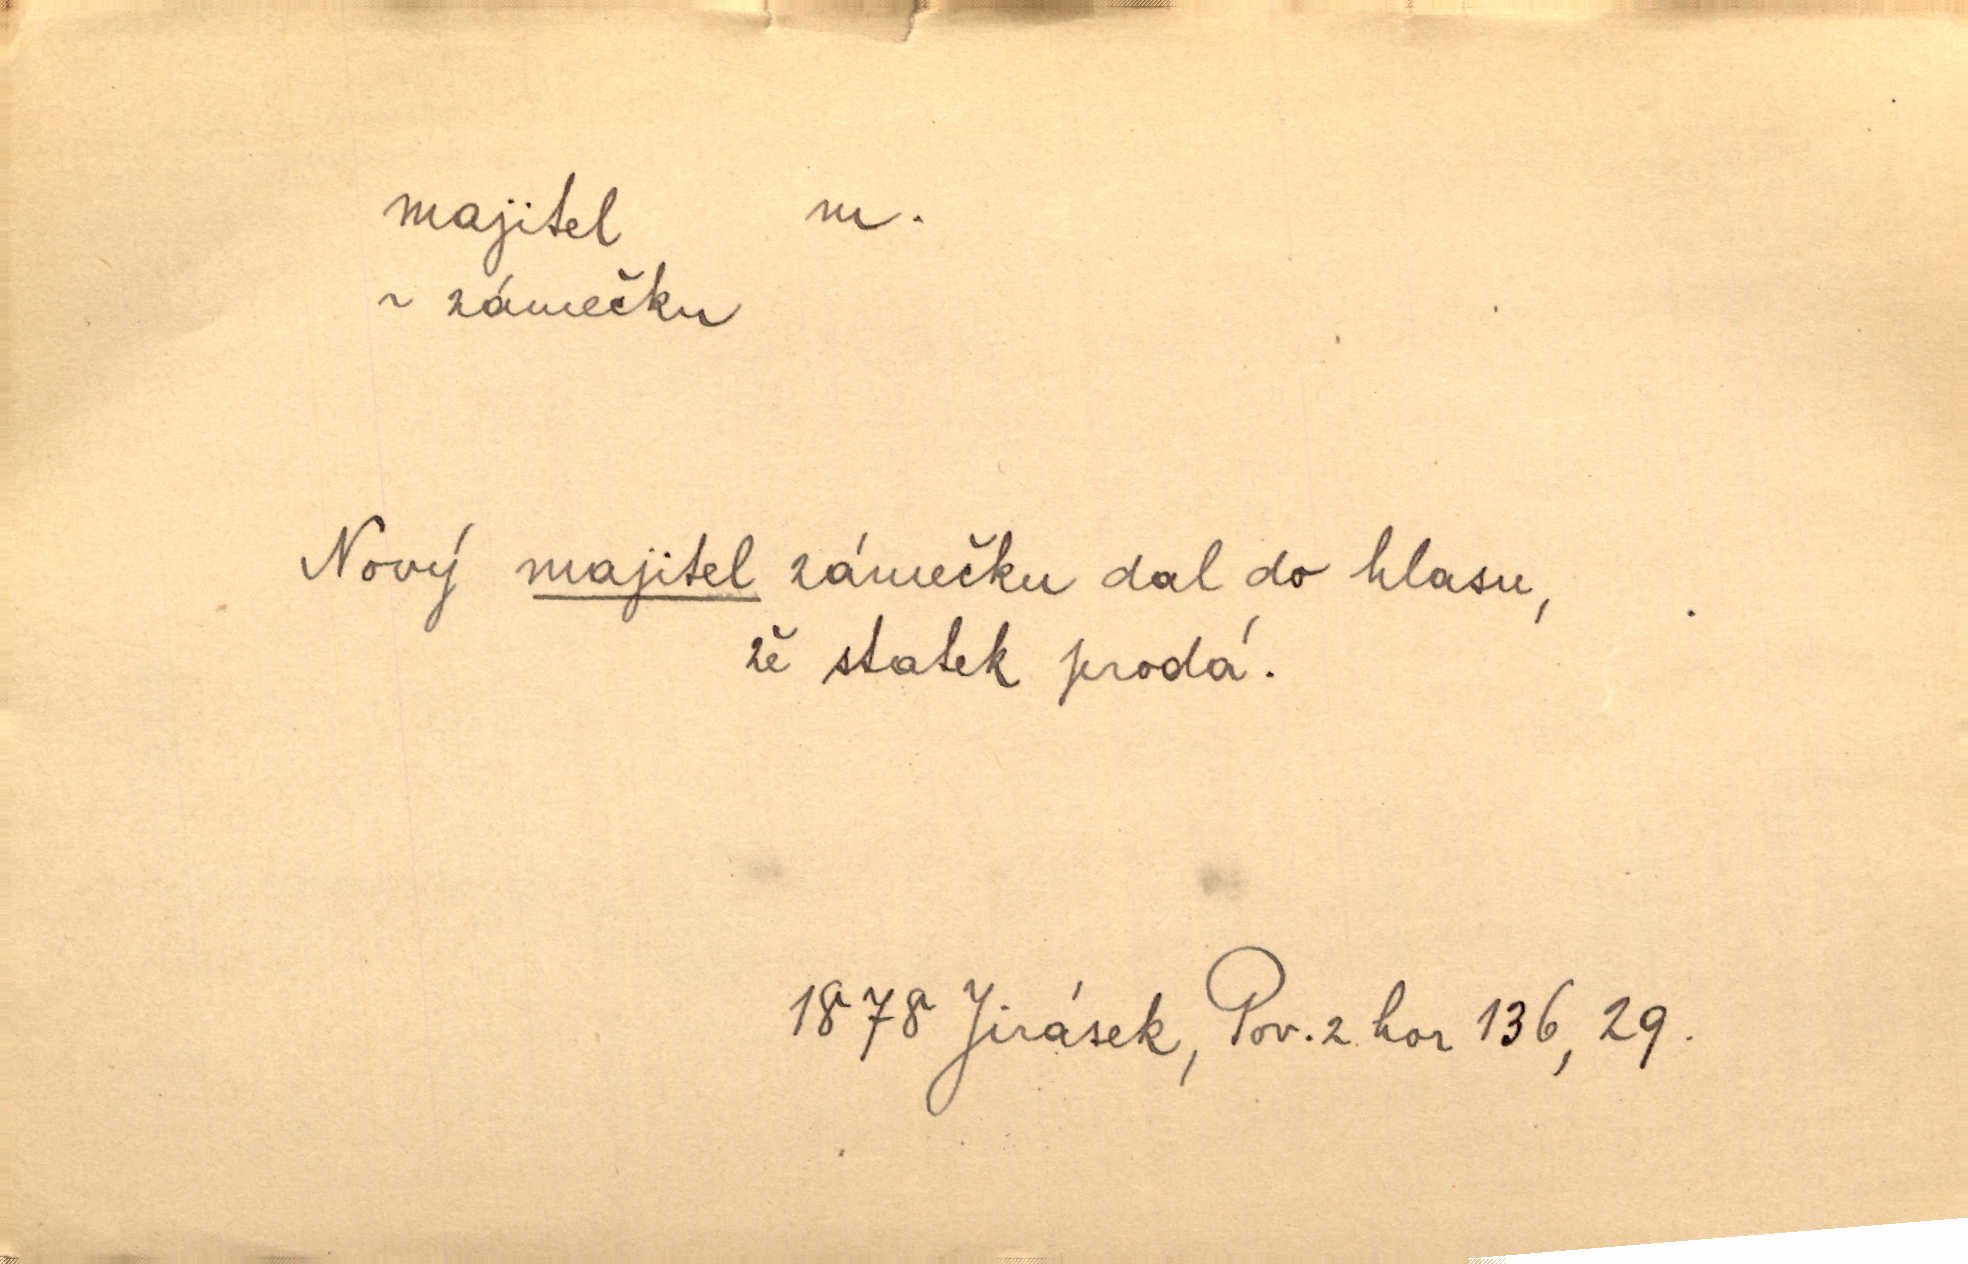 majitel m.
~ zámečku
Nový majitel zámečku dal do hlasu,
že statek prodá.
1878 Jirásek, Pov. z hor 136, 29.